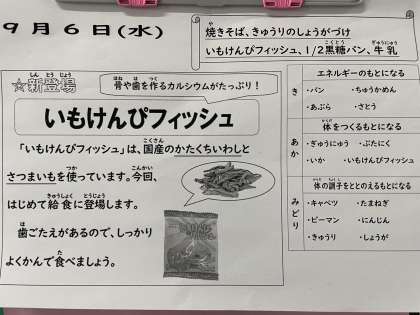 9月6日(水)
焼きそば、きゅうりのしょうがづけ
いもけんぴフィッシュ、1/2黒糖パン、牛乳
☆新登場
骨や歯を作るカルシウムがたっぷり!
いもけんぴフィッシュ
「いもけんぴフィッシュ」は、国産のかたくちいわしと
さつまいもを使っています。今回、
はじめて給食に登場します。
歯ごたえがあるので、しっかり
よくかんで食べましょう。
き
エネルギーのもとになる
・パン ・ちゅうかめん
・あぶら ・さとう
あか
体をつくるもとになる
・ぎゅうにゅう ・ぶたにく
・いか ・いもけんぴフィッシュ
みどり
体の調子をととのえるもとになる
・キャベツ ・たまねぎ
・ピーマン ・にんじん
・きゅうり ・しょうが